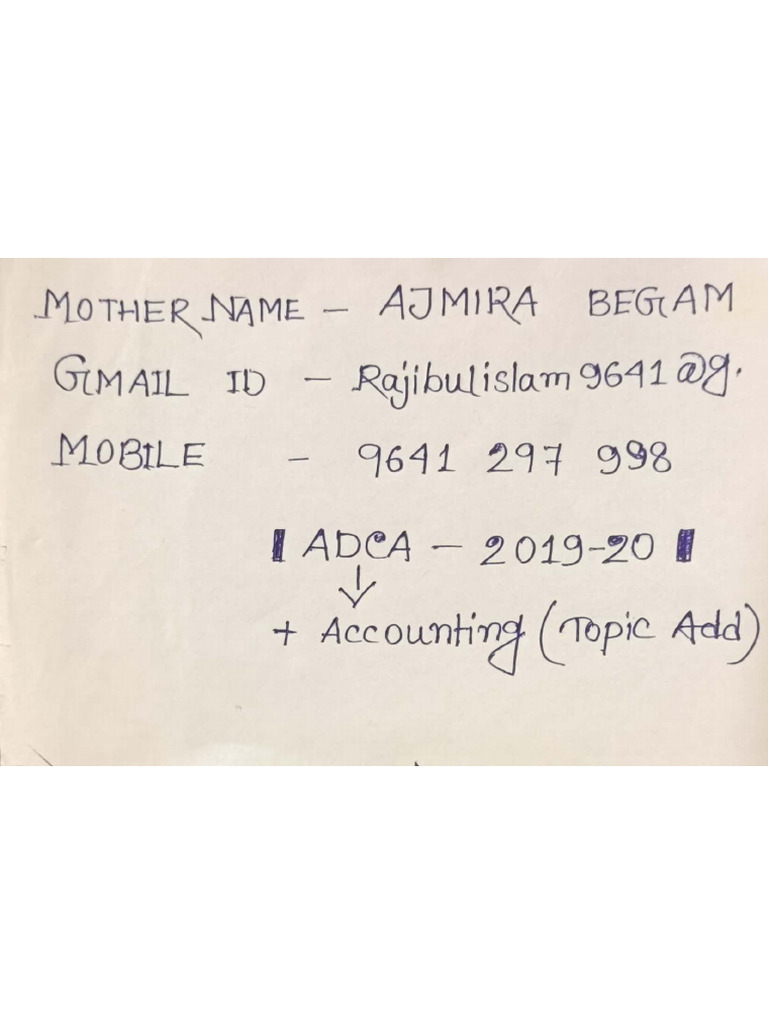 MOTHER NAME – AJMIRA BEGAM
GMAIL ID – Rajibulislam9641@g.
MOBILE – 9641 297 998
ADCA – 2019-20
↓
+ Accounting (Topic Add)